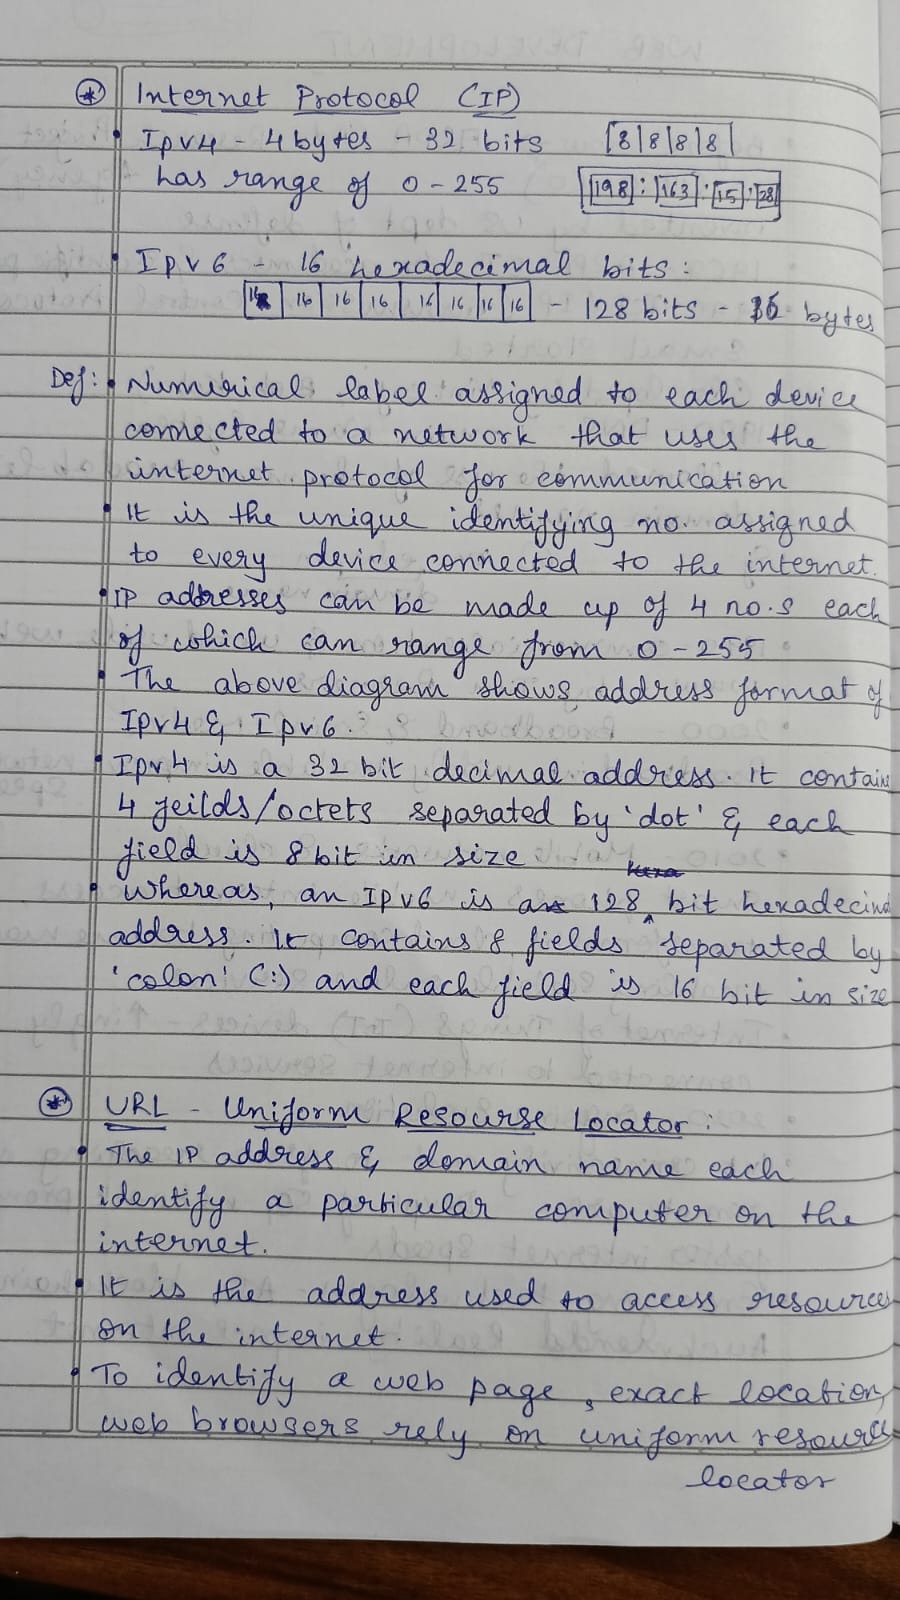 Internet Protocol (IP)
• Ipv4 - 4 bytes - 32 bits |8|8|8|8|
has range of 0-255 198 : 163 : 15 : 28
• Ipv6 - 16 hexadecimal bits :
16 16 16 16 16 16 16 16 - 128 bits - 16 bytes
Def: • Numerical label assigned to each device
connected to a network that uses the
internet protocol for communication
• It is the unique identifying no. assigned
to every device connected to the internet.
• IP addresses can be made up of 4 no.s each
of which can range from 0-255
• The above diagram shows address format of
Ipv4 & Ipv6.
• Ipv4 is a 32 bit decimal address. It contains
4 feilds/octets separated by 'dot' & each
field is 8 bit in size
• Whereas, an IPv6 is a 128 bit hexadecimal
address. It contains 8 fields separated by
'colon' (:) and each field is 16 bit in size
URL - Uniform Resourse Locator :
• The IP address & domain name each
identify a particular computer on the
internet.
• It is the address used to access resources
on the internet.
• To identify a web page, exact location,
web browsers rely on uniform resource
locator